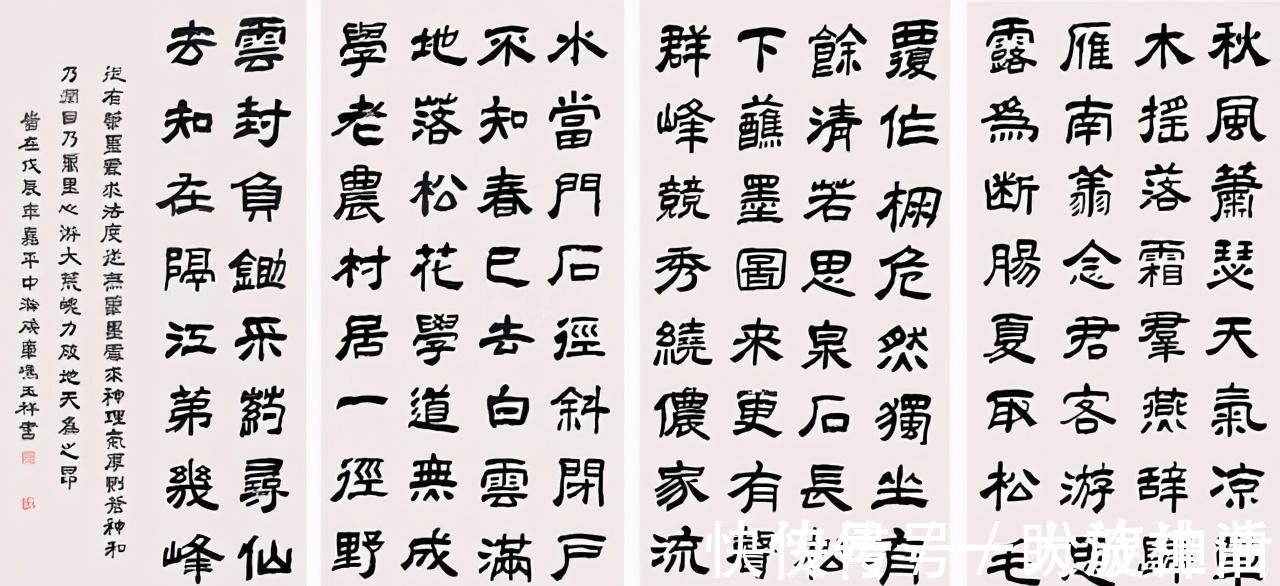 秋風蕭瑟天氣凉
木搖落霜羣燕辭
雁南翕念君客游
露爲断腸夏取松毛
覆作棡危然獨坐有
餘清若思泉石長松
下蘸墨圖來更有
群峰競秀繞儂家流
水當門石徑斜閉戸
不知春已去白雲滿
地落松花學道無成
學老農村居一徑野
雲封負鋤采葯尋仙
去知在隔江弟幾峰
從有筆墨處求法度從無筆墨處求神理氣厚則蒼神和
乃潤日乃里心游大荒魄力破地天為之昂
皆在戊辰年嘉平中澣馮玉祥書